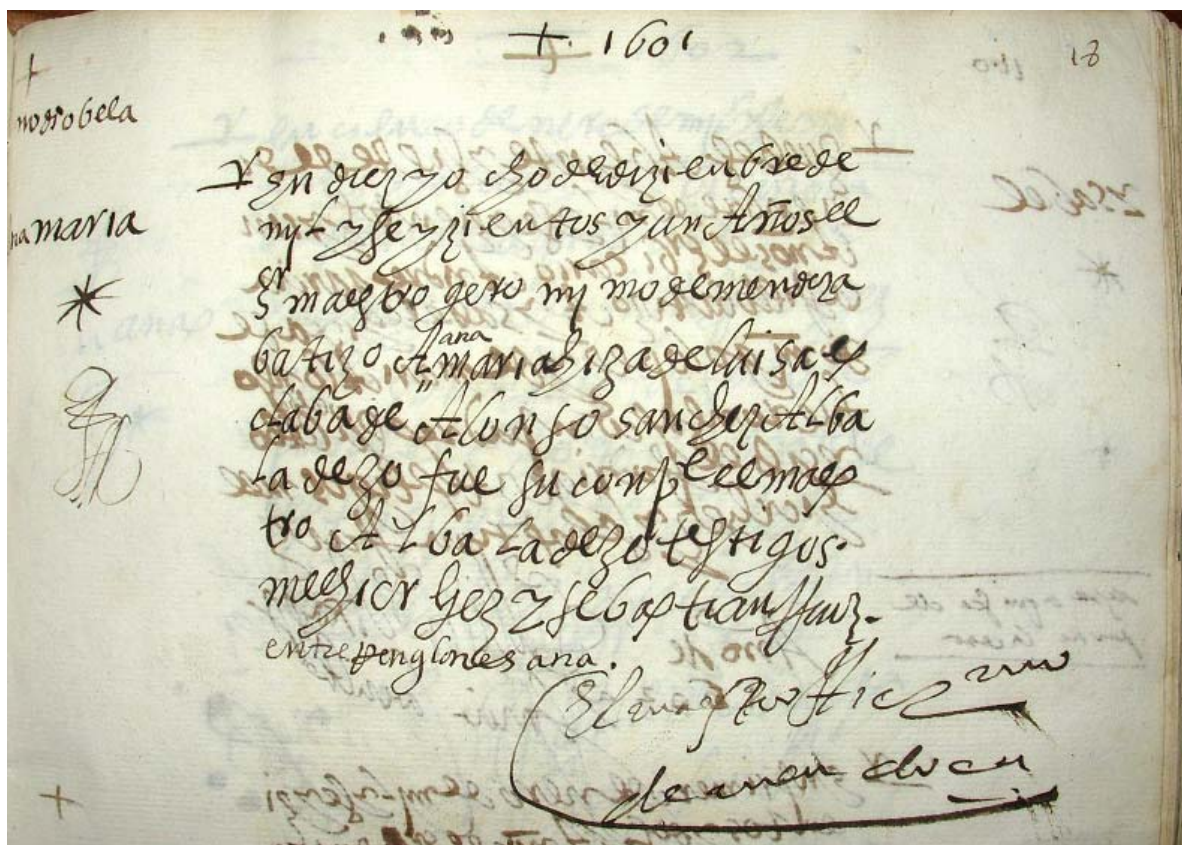 + 1601
18
nodrobela
na maria
En diez y ocho de dizienbre de
myl y seyzientos y un Años el
sr maestro gero ny mo de mendoza
batizo A ana maria hiza de luisa es
claba de Alonso sanchez Alba
ladezo fue su conpe el maes
tro Albaladezo testigos
melchior hez y sebastian
entrrenglones ana.
El maestro
de mendoca